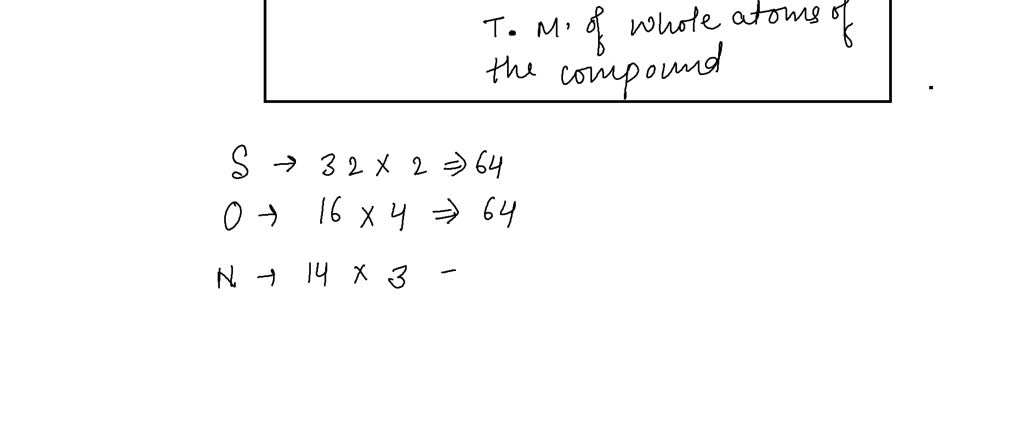 T. M. of whole atoms of
the compound
S → 32 × 2 ⇒ 64
O → 16 × 4 ⇒ 64
N → 14 × 3 -